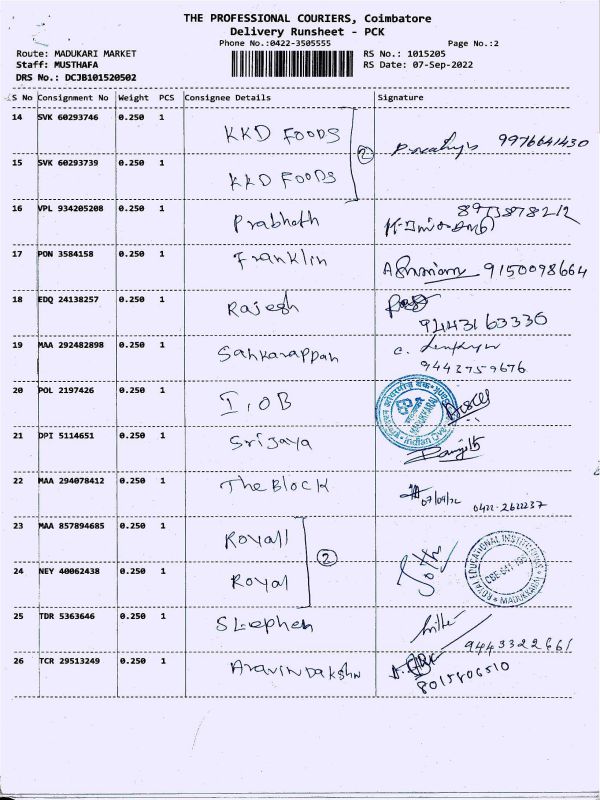 THE PROFESSIONAL COURIERS, Coimbatore
Delivery Runsheet - PCK
Phone No.:0422-3505555
Page No.:2
Route: MADUKARI MARKET
RS No.: 1015205
Staff: MUSTHAFA
RS Date: 07-Sep-2022
DRS No.: DCJB101520502
S No Consignment No Weight PCS Consignee Details Signature
14 SVK 60293746 0.250 1 KKD FOODS
② 9976641430
15 SVK 60293739 0.250 1 KKD FOODS
16 VPL 934205208 0.250 1 Prabhoth
17 PON 3584158 0.250 1 Franklin 9150098664
18 EDQ 24138257 0.250 1 Rajesh
9443163336
19 MAA 292482898 0.250 1 Sankarappan
9442759676
20 POL 2197426 0.250 1 I.O.B
21 DPI 5114651 0.250 1 Srijaya
22 MAA 294078412 0.250 1 The Block
07/09/22 0422-2622237
23 MAA 857894685 0.250 1 Royall
②
24 NEY 40062438 0.250 1 Royal
ROYAL EDUCATIONAL INSTITUTIONS
MADUKKARAI
25 TDR 5363646 0.250 1 Stephen
9443322661
26 TCR 29513249 0.250 1 Aravindakshn
8015406510